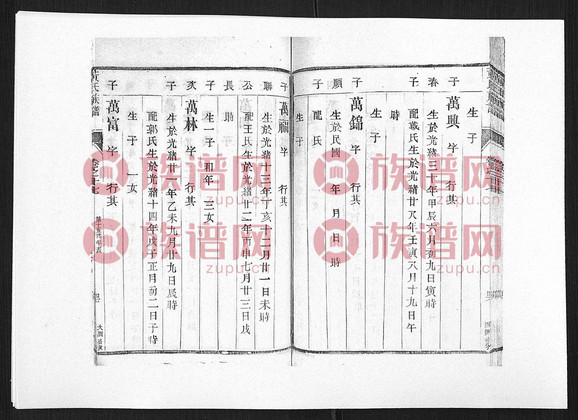 生子
春子萬興字行其
生於光緒三十年甲辰六月初九日寅時
配戴氏生於光緒廿八年壬寅八月十九日午
時
生子
順子萬錦字行其
生於民國年月日時
配氏
生子
聯子萬福字行其
生於光緒十三年丁亥十二月廿一日未時
公配王氏生於光緒廿二年丙申七月廿三日戌
長時
生子一和年三女
亥子萬林字行其
生於光緒廿一年乙未九月廿九日辰時
配郭氏生於光緒十四年戊子正月初二日子時
子萬富字行其
生子一女
黃氏族譜
族谱网
zupu.cn
族谱网
zupu.cn
族谱网
zupu.cn
族谱网
zupu.cn